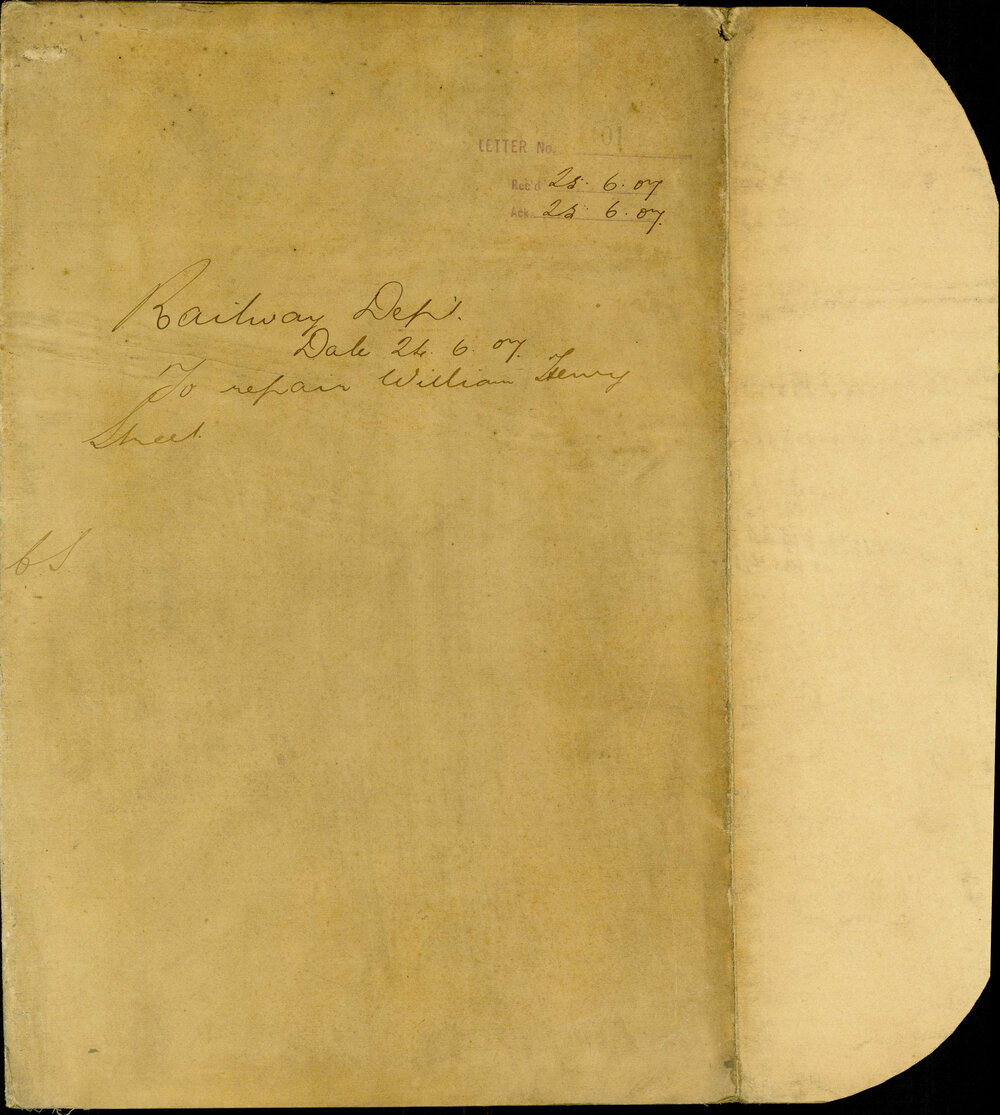 LETTER No. 01
Rec'd 25. 6. 07
Ack. 25. 6. 07.
Railway Dept.
Date 24. 6. 07.
To repair William Henry
Street.